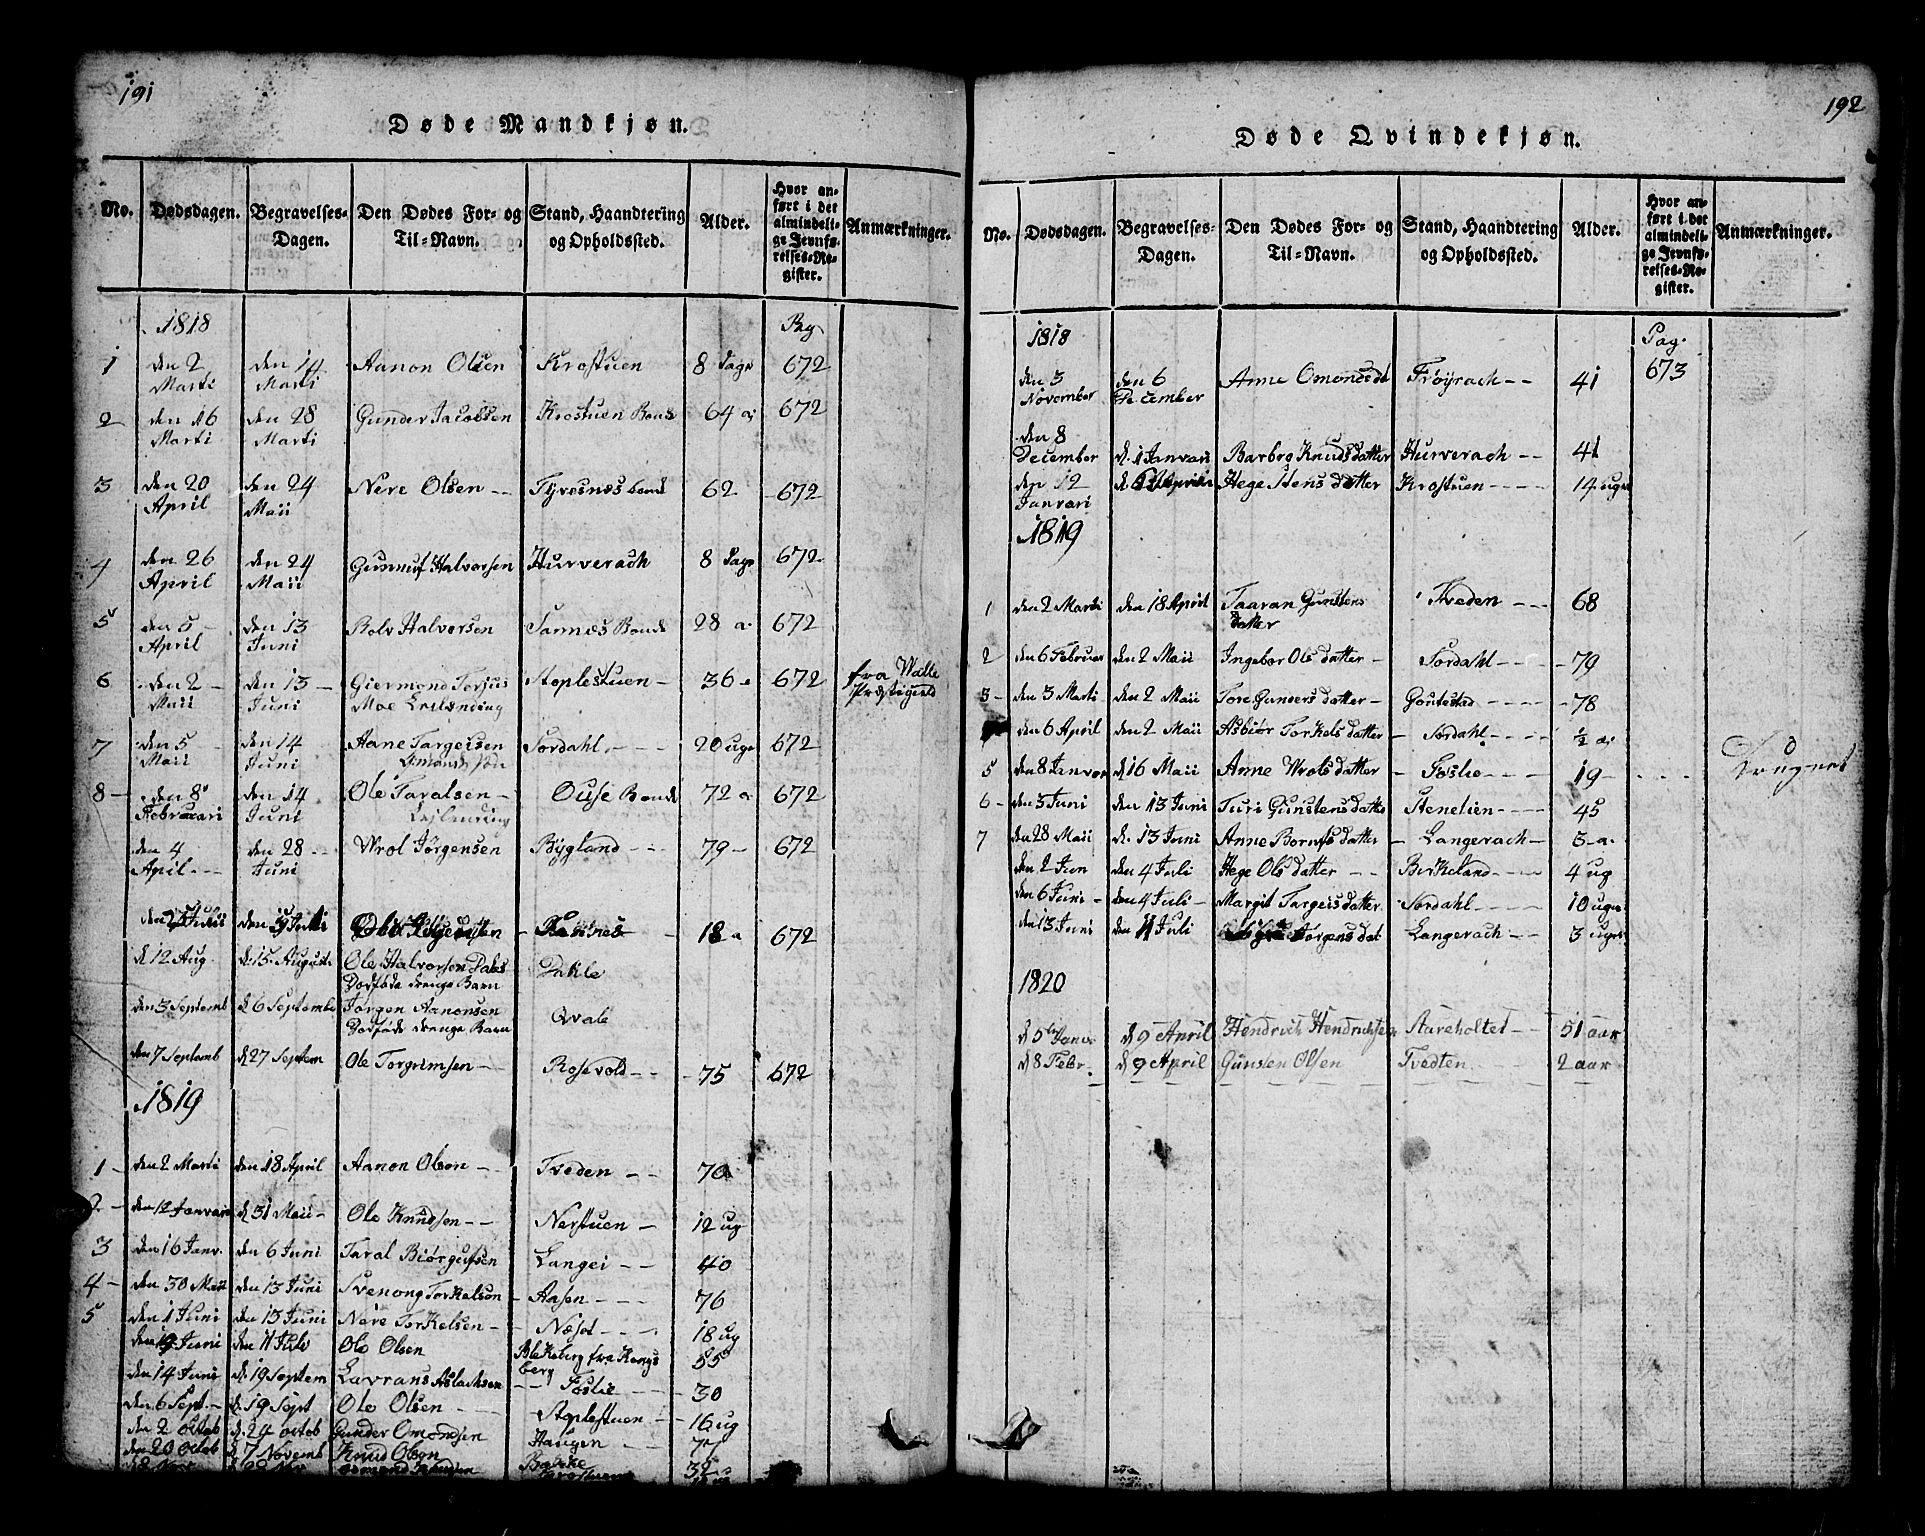 191
Døde Mandkjøn.
No. Dødsdagen. Begravelses-Dagen. Den Dødes For- og Til-Navn. Stand, Haandtering og Opholdssted. Alder. Hvor anført i det almindelige Jevnførelses-Register. Anmærkninger.
1818 Pag
1 den 2 Marti den 14 Marti Aanon Olsen Krostuen 8 Dage 672
2 den 16 Marti den 28 Marti Gunder Jacobsen Krostuen Bonde 64 a 672
3 den 20 April den 24 Maii Nere Olsen Tyvesnæs bonde 62 672
4 den 26 April den 24 Maii Gunnuf Halvorsen Hurverach 8 Dage 672
5 den 5 April den 13 Juni Rolv Halvorsen Sannes Bonde 28 a 672
6 den 2 Maii den 13 Juni Giermond Torjus Moe Stoplestuen 36 672 fra Walle
7 den 5 Maii den 14 Juni Aane Targeisen Sordahl 20 uge 672
8 den 8 Februari den 14 Juni Ole Taralsen Ouse Bonde 72 a 672
den 4 April den 28 Juni Wrol Jørgensen Bygland 79 672
18 a 672
d 12 Aug. d. 15 August Ole Halvorsen Dødføde drenge Barn Dahle
den 3 Septemb d 6 Septembe Jørgen Aanonsen Dødføde drenge Barn Qvale
den 7 Septemb d 27 Septem Ole Torgrimsen Rosevold 75 672
1819
1 den 2 Marti den 18 April Aanon Olson Tveden 70
2 den 12 Januari d 31 Maii Ole Knudsen Nerstuen 12 ug
3 den 16 Janv. den 6 Juni Taral Biørgufsen Langei 40
4 den 30 Maii den 13 Juni Svenong Torkelson Aasen 76
5 den 1 Juni den 13 Juni Nere Torkelsen Næset 18 ug
den 19 Juni den 11 Juli Ole Olsen Blekeberg fra Kongsberg 55
den 14 Juni d. 19 Septem Lavrans Aslachsen Foslie 30
den 6 Sept. d. 19 Sept Ole Olsen Stoplestuen 16 ug
den 2 octob d. 24 octob Gunder Omondsen Haugen 77
den 20 octob d 7 Novemb Knud Olson 32
192
Døde Qvindekjøn.
No. Dødsdagen. Begravelses-Dagen. Den Dødes For- og Til-Navn. Stand, Haandtering og Opholdssted. Alder. Hvor anført i det almindelige Jevnførelses-Register. Anmærkninger.
1818 Pag.
den 3 November den 6 December Anne Omonsdt Frøyrach 41 673
den 8 December d. 1 Janvari Barbro Knudsdatter Hurverach 41
den 12 Janvari Hege Stensdatter Krostuen 14 uger
1819
1 den 2 Marti den 18 April Taaran Gunstensdatter Tveden 68
2 den 6 Februar den 2 Maii Ingebor Olsdatter Sordahl 79
3 den 3 Marti den 2 Maii Tore Gundersdatter 78
den 6 April den 2 Maii Asbiør Torkelsdatter Sordahl ½ a
5 den 8 Janvar d 16 Maii Anne Wrolsdatter Foslie 19 Drugnet
6 den 3 Juni den 13 Juni Turi Gunstensdatter Stenelien 45
7 den 28 Maii d. 13 Juni Anne Bornfsdatter Langerach 3 a.
den 2 Jun den 4 Juli Hege Olsdatter Birkeland 4 ug
den 6 Juni den 4 Juli Margit Targeisdatter Sordahl 10 uger
den 13 Juni den 11 Juli Jørgensdat Langerach 3 uger
1820
d 5te Janv d 9 April Hendrich Hendrichsen Aareholtet 51 aar
d 8 Febr. d 9 April Gunsten Olsen Tvedten 2 aar